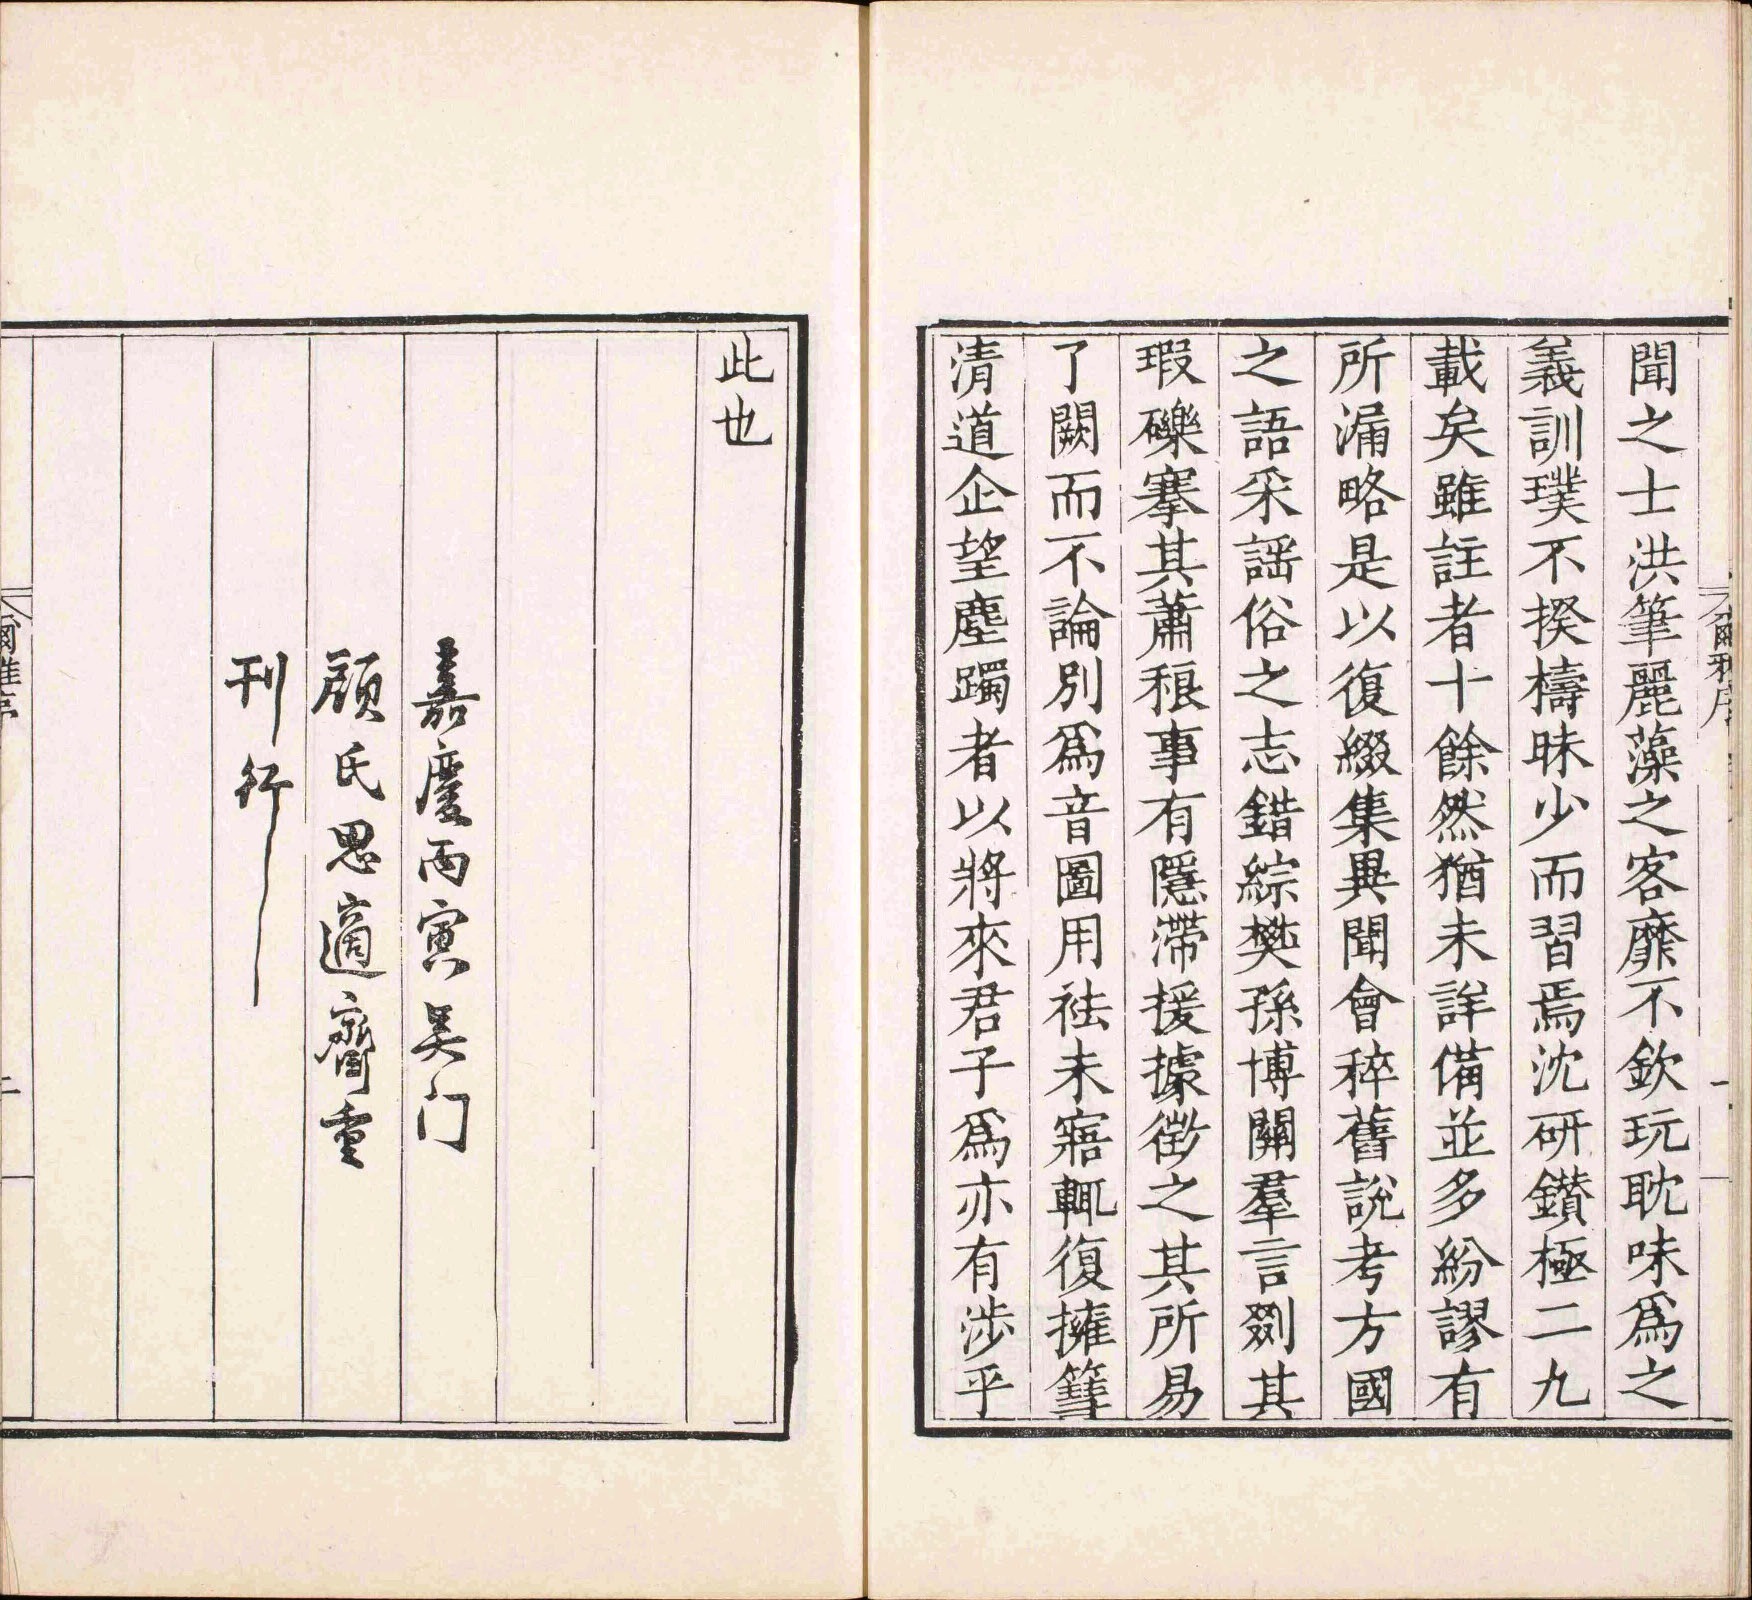 聞之士洪筆麗藻之客靡不欽玩耽味爲之
義訓璞不揆檮昧少而習焉沈研鑽極二九
載矣雖註者十餘然猶未詳備並多紛謬有
所漏略是以復綴集異聞會稡舊說考方國
之語采謡俗之志錯綜樊孫博關羣言剟其
瑕礫搴其蕭稂事有隱滯援據徵之其所易
了闕而不論別爲音圖用祛未寤輒復擁篲
清道企望塵躅者以將來君子爲亦有涉乎
此也
嘉慶丙寅吴门
顧氏思適齋重
刊行
爾雅序
二